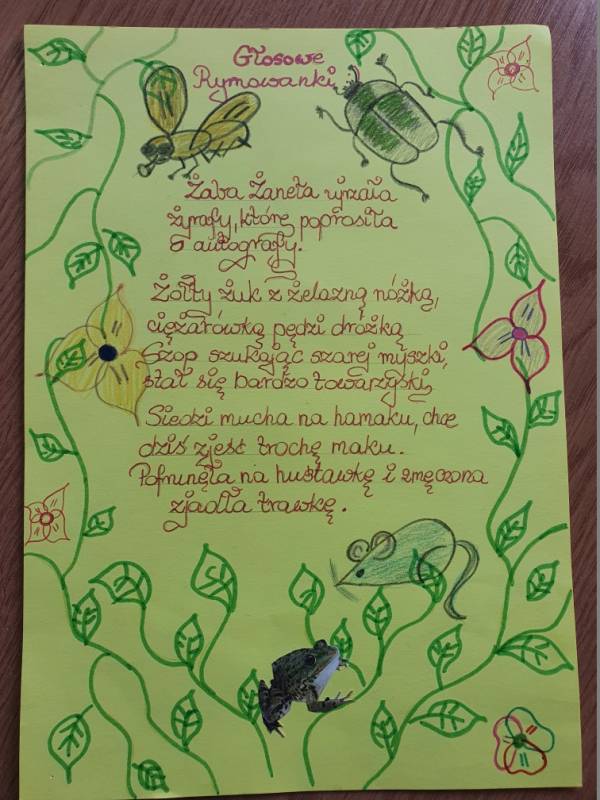 Głosowe
Rymowanki
Żaba Żaneta ujrzała
żyrafy, którę poprosiła
o autografy.
Żółty żuk z żelazną nóżką,
ciężarówką pędzi dróżką
Szop szukając szarej myszki,
stał się bardzo towarzyski,
Siedzi mucha na hamaku, chce
dziś zjeść trochę maku.
Pofrunęła na huśtawkę i zmęczona
zjadła trawkę.